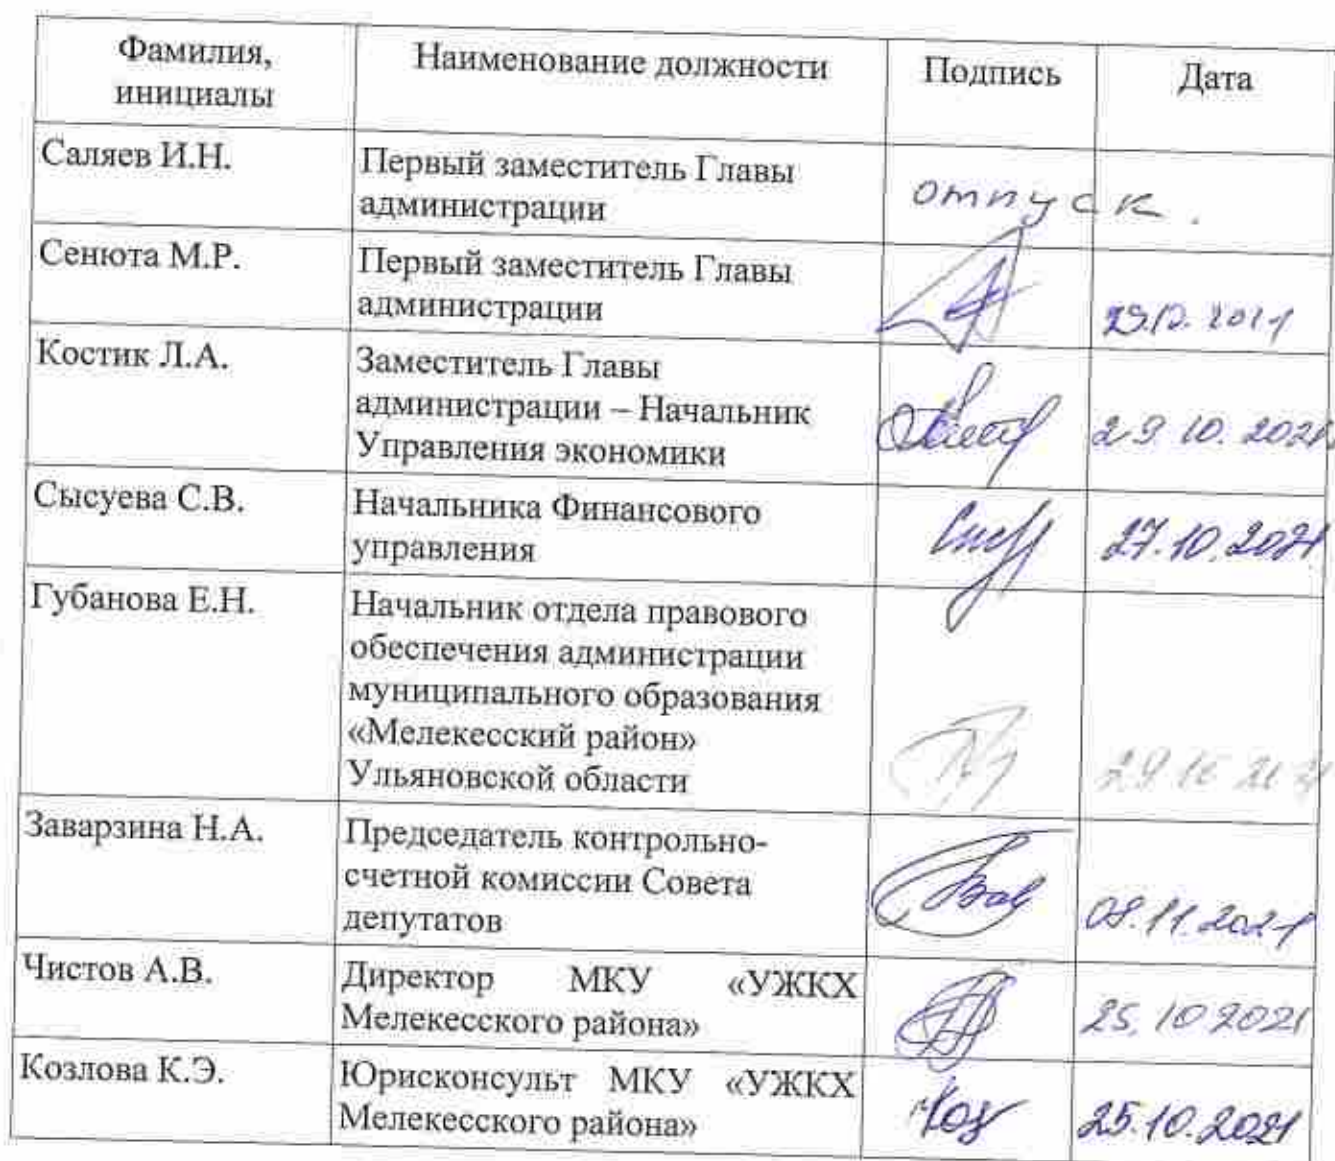 Фамилия,
инициалы
Наименование должности
Подпись
Дата
Саляев И.Н.
Первый заместитель Главы
администрации
отпуск.
Сенюта М.Р.
Первый заместитель Главы
администрации
29.10.2021
Костик Л.А.
Заместитель Главы
администрации – Начальник
Управления экономики
29.10.2021
Сысуева С.В.
Начальника Финансового
управления
27.10.2021
Губанова Е.Н.
Начальник отдела правового
обеспечения администрации
муниципального образования
«Мелекесский район»
Ульяновской области
29.10.2021
Заварзина Н.А.
Председатель контрольно-
счетной комиссии Совета
депутатов
08.11.2021
Чистов А.В.
Директор МКУ «УЖКХ
Мелекесского района»
25.10.2021
Козлова К.Э.
Юрисконсульт МКУ «УЖКХ
Мелекесского района»
25.10.2021